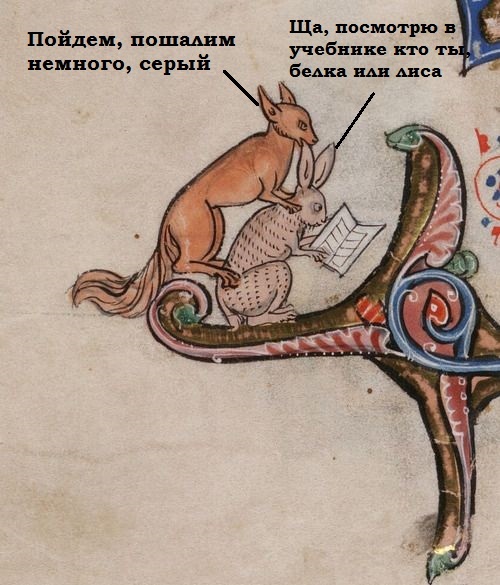 Пойдем, пошалим
немного, серый
Ща, посмотрю в
учебнике кто ты,
белка или лиса